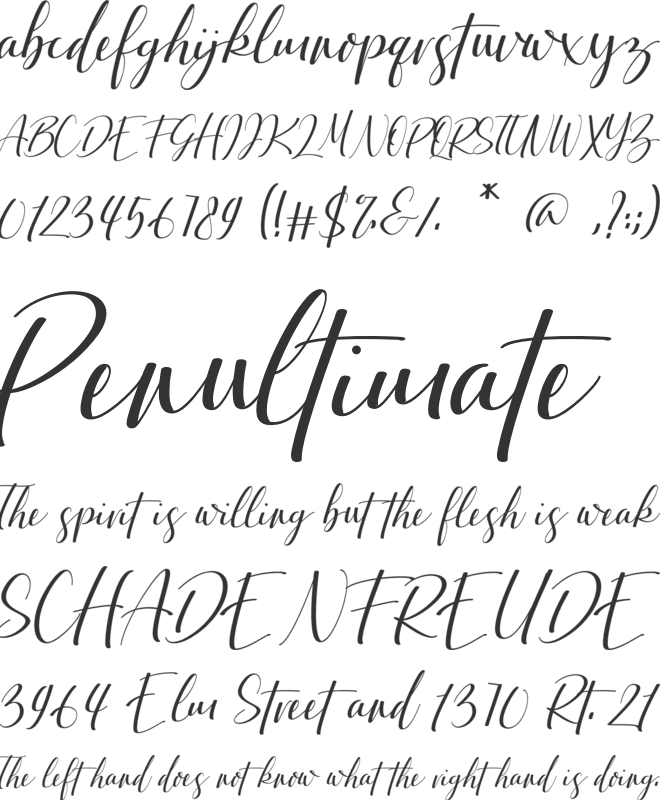 abcdefghijklmnopqrstuvwxyz
ABCDEFGHIJKLMNOPQRSTUVWXYZ
0123456789 (!#$%&/. * @ ,?:;)
Penultimate
The spirit is willing but the flesh is weak
SCHADENFREUDE
3964 Elm Street and 1370 Rt. 21
The left hand does not know what the right hand is doing.